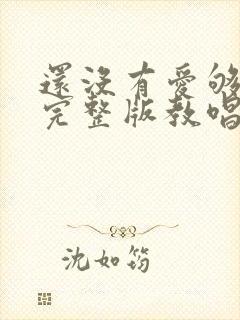 還沒有愛夠
完整版教唱
沈如筠